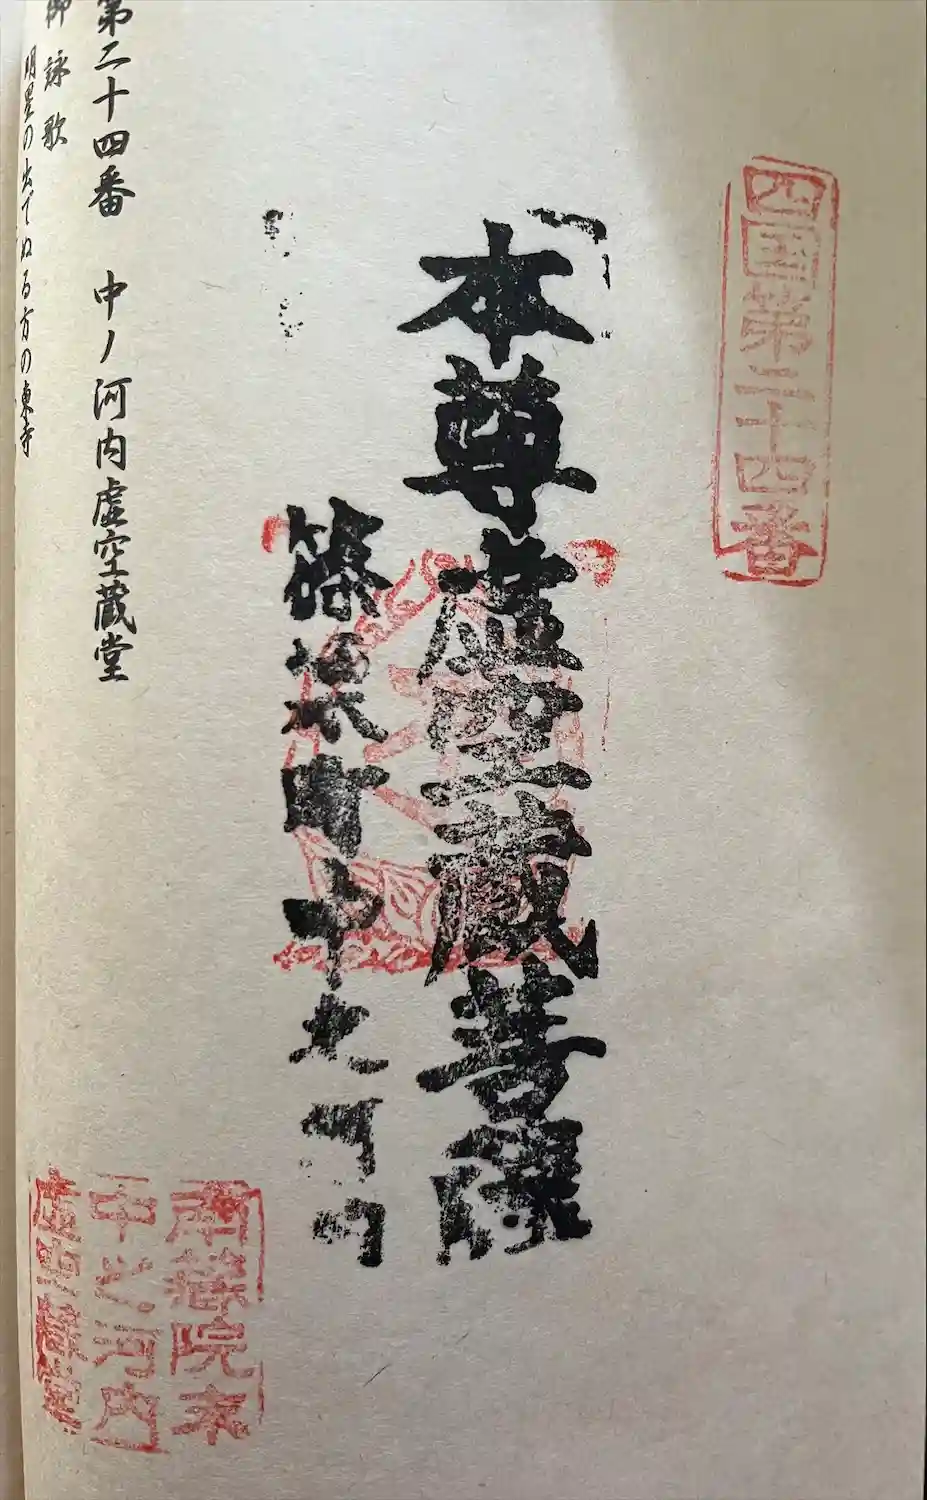 四国第二十四番
本尊虚空蔵菩薩
篠栗町中之河内
南蔵院末
中之河内
虚空蔵堂
第二十四番 中ノ河内虚空蔵堂
御詠歌
明星の出でぬる方の東寺